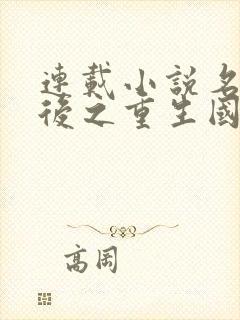 連載小説名
後之重生國
高岡